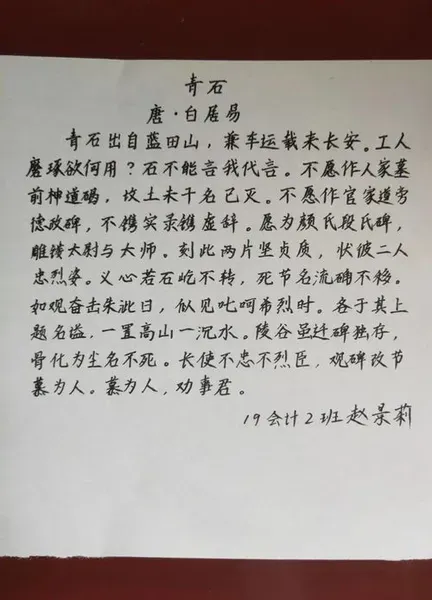 青石
唐·白居易
青石出自蓝田山，兼车运载来长安。工人
磨琢欲何用？石不能言我代言。不愿作人家墓
前神道碣，坟土未干名已灭。不愿作官家道旁
德政碑，不镌实录镌虚辞。愿为颜氏段氏碑，
雕镂太尉与大师。刻此两片坚贞质，状彼二人
忠烈姿。义心若石屹不转，死节名流确不移。
如观奋击朱泚日，似见叱呵希烈时。各于其上
题名谥，一置高山一沉水。陵谷虽迁碑独存，
骨化为尘名不死。长使不忠不烈臣，观碑改节
慕为人。慕为人，劝事君。
19会计2班赵景莉